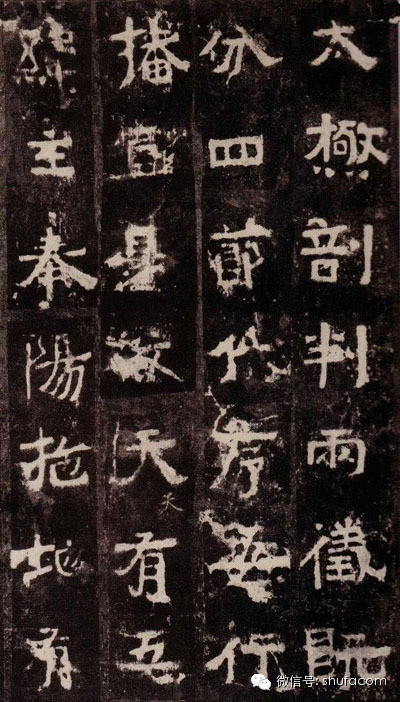 太極剖判兩儀既
分四節代序五行
播宣是故天有五
緯主奉陽施地有
微信号: shufacom